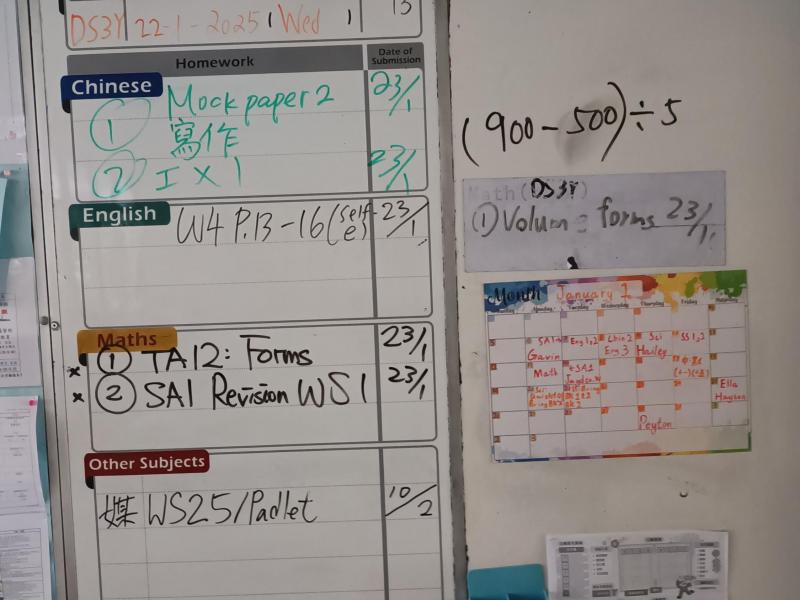 DS3Y 22-1-2025 Wed 13
Homework
Date of Submission
Chinese
① Mock paper 2 23/1
寫作
② I X 1 23/1
English
W4 P.13-16 (self-e) 23/1
Maths
① TA12: Forms 23/1
② SA1 Revision WS 1 23/1
Other Subjects
媒 WS25/Padlet 10/2
(900 - 500) ÷ 5
Math (DS3Y)
① Volume: forms 23/1
Month January 1
Monday Tuesday Wednesday Thursday Friday Saturday
Eng 1,2 Chin 2 Sci SS 1,2
Gavin Eng 3 Hailey
Math SA1
Ella
Hayson
Peyton